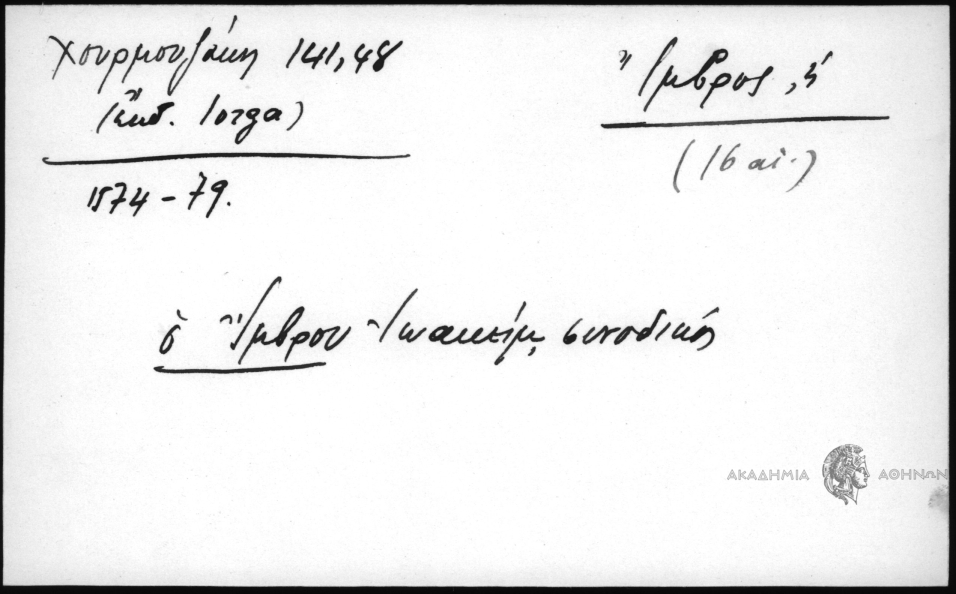 Χουρμουζάκη 141,48
(ἔκδ. Iorga)
1574-79.
Ἴμβρος, ἡ
(16 αἰ.)
ὁ Ἴμβρου Ἰωακείμ, συνοδικός
ΑΚΑΔΗΜΙΑ ΑΘΗΝΩΝ